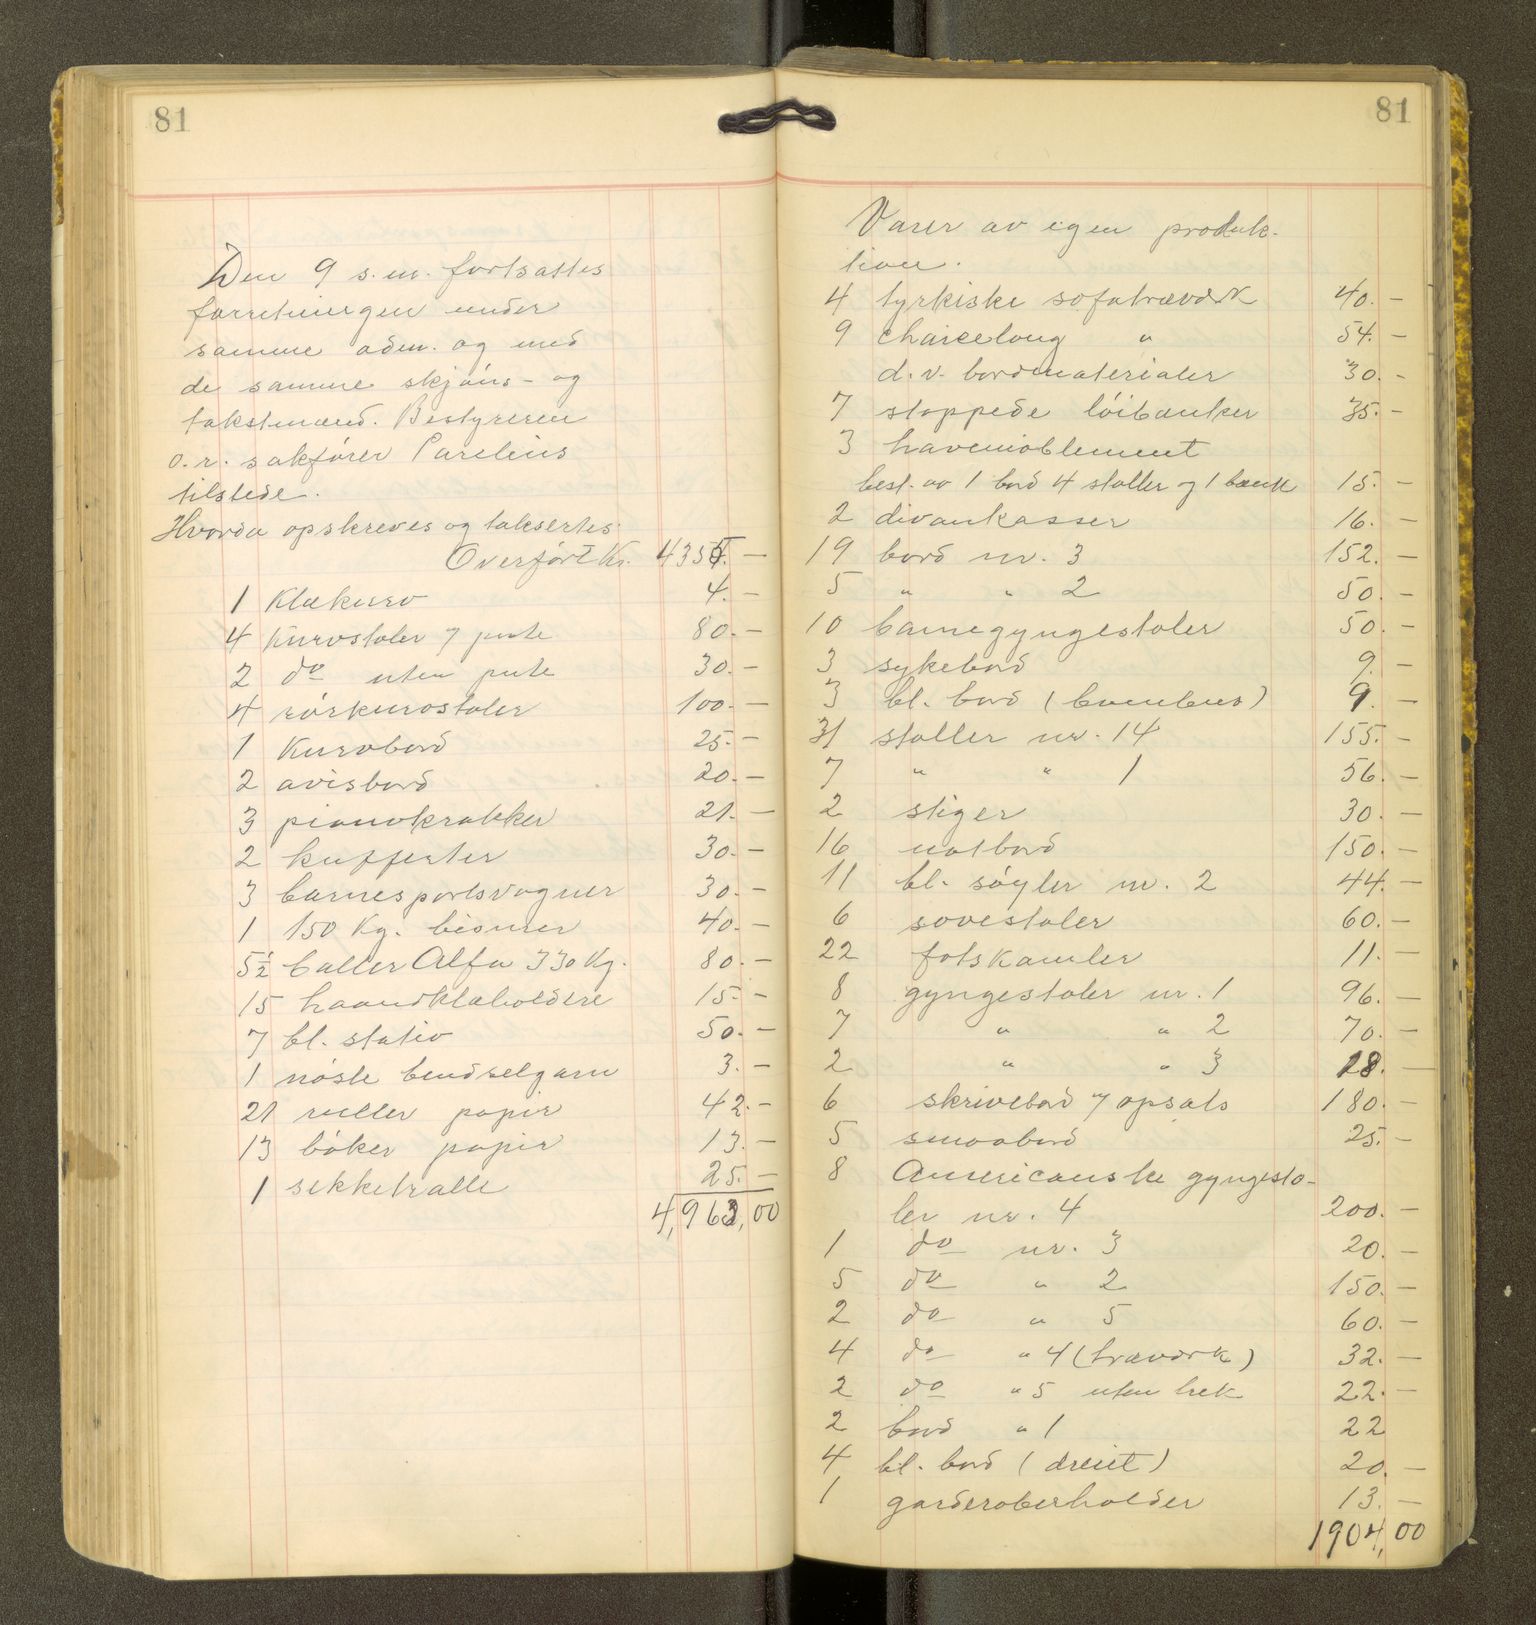 81
Den 9 s.m. fortsattes
forretningen under
samme adm. og med
de samme skjøns- og
takstmænd. Bestyreren
o.r. sakfører Parelius
tilstede.
Hvorda opskreves og taksertes:
Overført Kr. 4355.—
1 Klækurv 4.—
4 Kurvstoler 7 pute 80.—
2 do uten pute 30.—
4 rörkurvstoler 100.—
1 Kurvbord 25.—
2 avisbord 20.—
3 pianokrakker 21.—
2 kufferter 30.—
3 barnesportsvogner 30.—
1 150 Kg. bismer 40.—
5½ baller Alfa 330 Kg. 80.—
15 haandklæholdere 15.—
7 bl. stativ 50.—
1 nøste bendselgarn 3.—
21 ruller papir 42.—
13 bøker papir 13.—
1 sekketralle 25.—
4,963,00
81
Varer av egen produk-
tion.
4 tyrkiske sofatrævərk 40.—
9 chaiselong " 54.—
d.v. bordmaterialer 30.—
7 stoppede löibenker 35.—
3 havemøblement
best. av 1 bord 4 stoller og 1 bænk 15.—
2 divankasser 16.—
19 bord nr. 3 152.—
5 " " 2 50.—
10 barnegyngestoler 50.—
3 sykebord 9.—
3 bl. bord (bambus) 9.—
31 stoller nr. 14 155.—
7 " " 1 56.—
2 stiger 30.—
16 natbord 150.—
11 bl. søyler nr. 2 44.—
6 sovestoler 60.—
22 fotskamler 11.—
8 gyngestoler nr. 1 96.—
7 " " 2 70.—
2 " " 3 18.—
6 skrivebord 7 opsats 180.—
5 smaabord 25.—
8 Americanske gyngesto-
ler nr. 4 200.—
1 do nr. 3 20.—
5 do " 2 150.—
2 do " 5 60.—
4 do " 4 (trævərk) 32.—
2 do " 5 uten trek 22.—
2 bord " 1 22
4 bl. bord (dreiet) 20.—
1 garderobeholder 13.—
1904,00